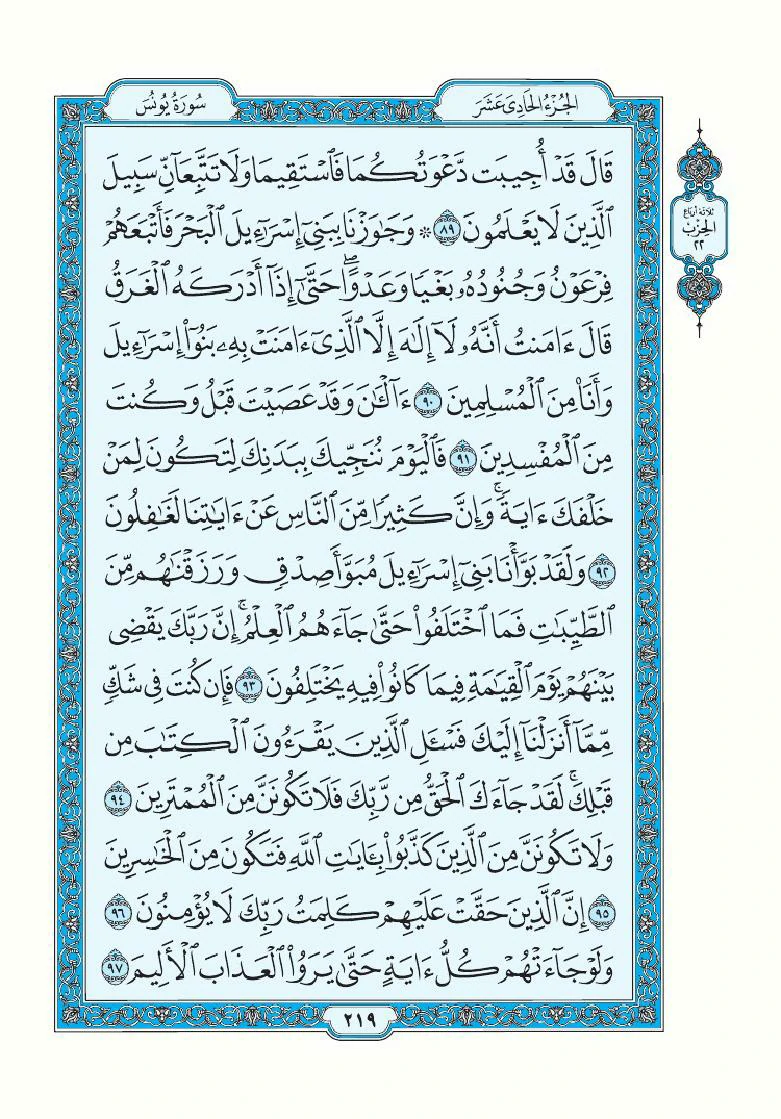 الجُزْءُ الحَادِي عَشَرَ
سُورَةُ يُونُسَ
ثلاثة أرباع
الحزب
٢٢
قَالَ قَدْ أُجِيبَت دَّعْوَتُكُمَا فَٱسْتَقِيمَا وَلَا تَتَّبِعَآنِّ سَبِيلَ
ٱلَّذِينَ لَا يَعْلَمُونَ ٨٩ ۞ وَجَٰوَزْنَا بِبَنِىٓ إِسْرَٰٓءِيلَ ٱلْبَحْرَ فَأَتْبَعَهُمْ
فِرْعَوْنُ وَجُنُودُهُۥ بَغْيًا وَعَدْوًا ۖ حَتَّىٰٓ إِذَآ أَدْرَكَهُ ٱلْغَرَقُ
قَالَ ءَامَنتُ أَنَّهُۥ لَآ إِلَٰهَ إِلَّا ٱلَّذِىٓ ءَامَنَتْ بِهِۦ بَنُوٓا۟ إِسْرَٰٓءِيلَ
وَأَنَا۠ مِنَ ٱلْمُسْلِمِينَ ٩٠ ءَآلْـَٰٔنَ وَقَدْ عَصَيْتَ قَبْلُ وَكُنتَ
مِنَ ٱلْمُفْسِدِينَ ٩١ فَٱلْيَوْمَ نُنَجِّيكَ بِبَدَنِكَ لِتَكُونَ لِمَنْ
خَلْفَكَ ءَايَةً ۚ وَإِنَّ كَثِيرًا مِّنَ ٱلنَّاسِ عَنْ ءَايَٰتِنَا لَغَٰفِلُونَ
٩٢ وَلَقَدْ بَوَّأْنَا بَنِىٓ إِسْرَٰٓءِيلَ مُبَوَّأَ صِدْقٍ وَرَزَقْنَٰهُم مِّنَ
ٱلطَّيِّبَٰتِ فَمَا ٱخْتَلَفُوا۟ حَتَّىٰ جَآءَهُمُ ٱلْعِلْمُ ۚ إِنَّ رَبَّكَ يَقْضِى
بَيْنَهُمْ يَوْمَ ٱلْقِيَٰمَةِ فِيمَا كَانُوا۟ فِيهِ يَخْتَلِفُونَ ٩٣ فَإِن كُنتَ فِى شَكٍّ
مِّمَّآ أَنزَلْنَآ إِلَيْكَ فَسْـَٔلِ ٱلَّذِينَ يَقْرَءُونَ ٱلْكِتَٰبَ مِن
قَبْلِكَ ۚ لَقَدْ جَآءَكَ ٱلْحَقُّ مِن رَّبِّكَ فَلَا تَكُونَنَّ مِنَ ٱلْمُمْتَرِينَ ٩٤
وَلَا تَكُونَنَّ مِنَ ٱلَّذِينَ كَذَّبُوا۟ بِـَٔايَٰتِ ٱللَّهِ فَتَكُونَ مِنَ ٱلْخَٰسِرِينَ
٩٥ إِنَّ ٱلَّذِينَ حَقَّتْ عَلَيْهِمْ كَلِمَتُ رَبِّكَ لَا يُؤْمِنُونَ ٩٦
وَلَوْ جَآءَتْهُمْ كُلُّ ءَايَةٍ حَتَّىٰ يَرَوُا۟ ٱلْعَذَابَ ٱلْأَلِيمَ ٩٧
٢١٩